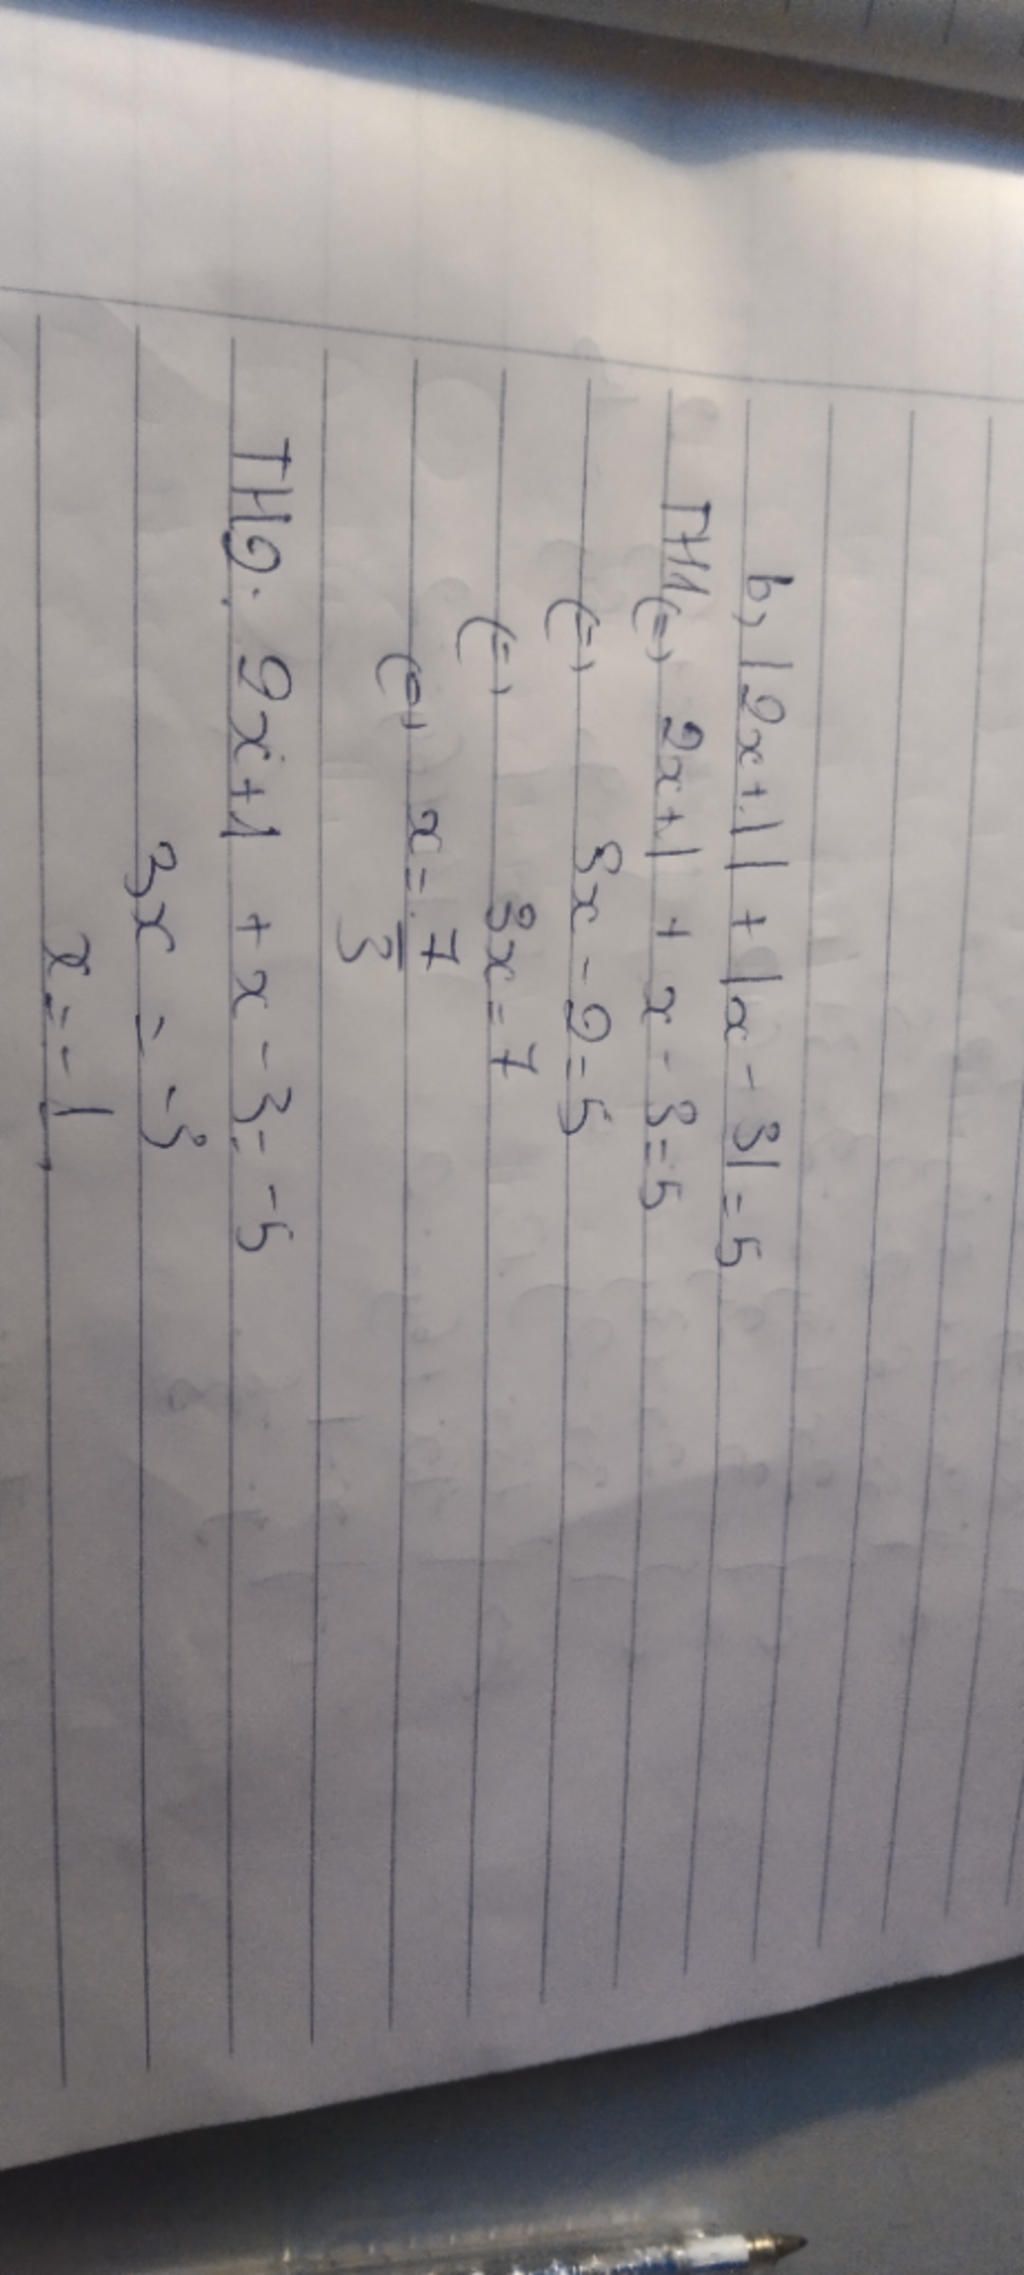 b, |2x+1| + |x - 3| = 5
TH1 (=) 2x+1 + x - 3 = 5
(=) 3x - 2 = 5
(=) 3x = 7
(=) x = 7/3
TH2: 2x+1 + x - 3 = -5
3x = -3
x = -1